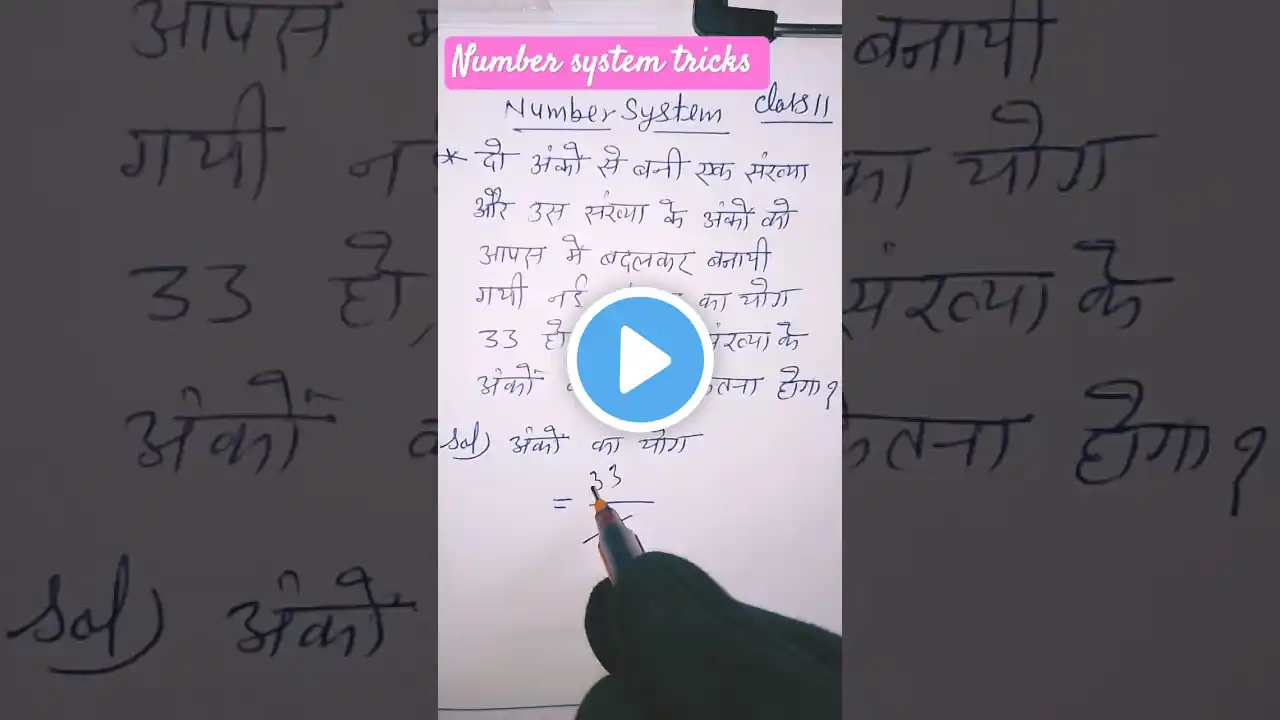 Number system tricks
Number System Class 11
* दो अंकों से बनी एक संख्या
और उस संख्या के अंकों को
आपस में बदलकर बनायी
गयी नई का योग
33 हो संख्या के
अंकों होगा?
Sol) अंकों का योग
= 33